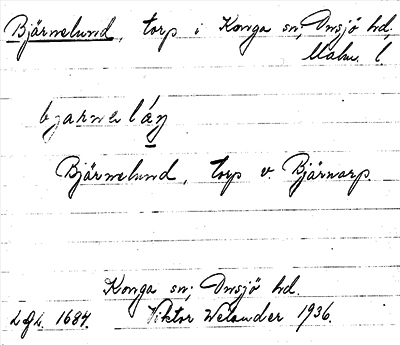 Bjärnelund, torp i Konga sn, Onsjö hd,
Malm. l.
bjarnelán
Bjärnelund, torp v. Bjärnarp.
Konga sn; Onsjö hd.
LGL. 1684. Viktor Welander 1936.